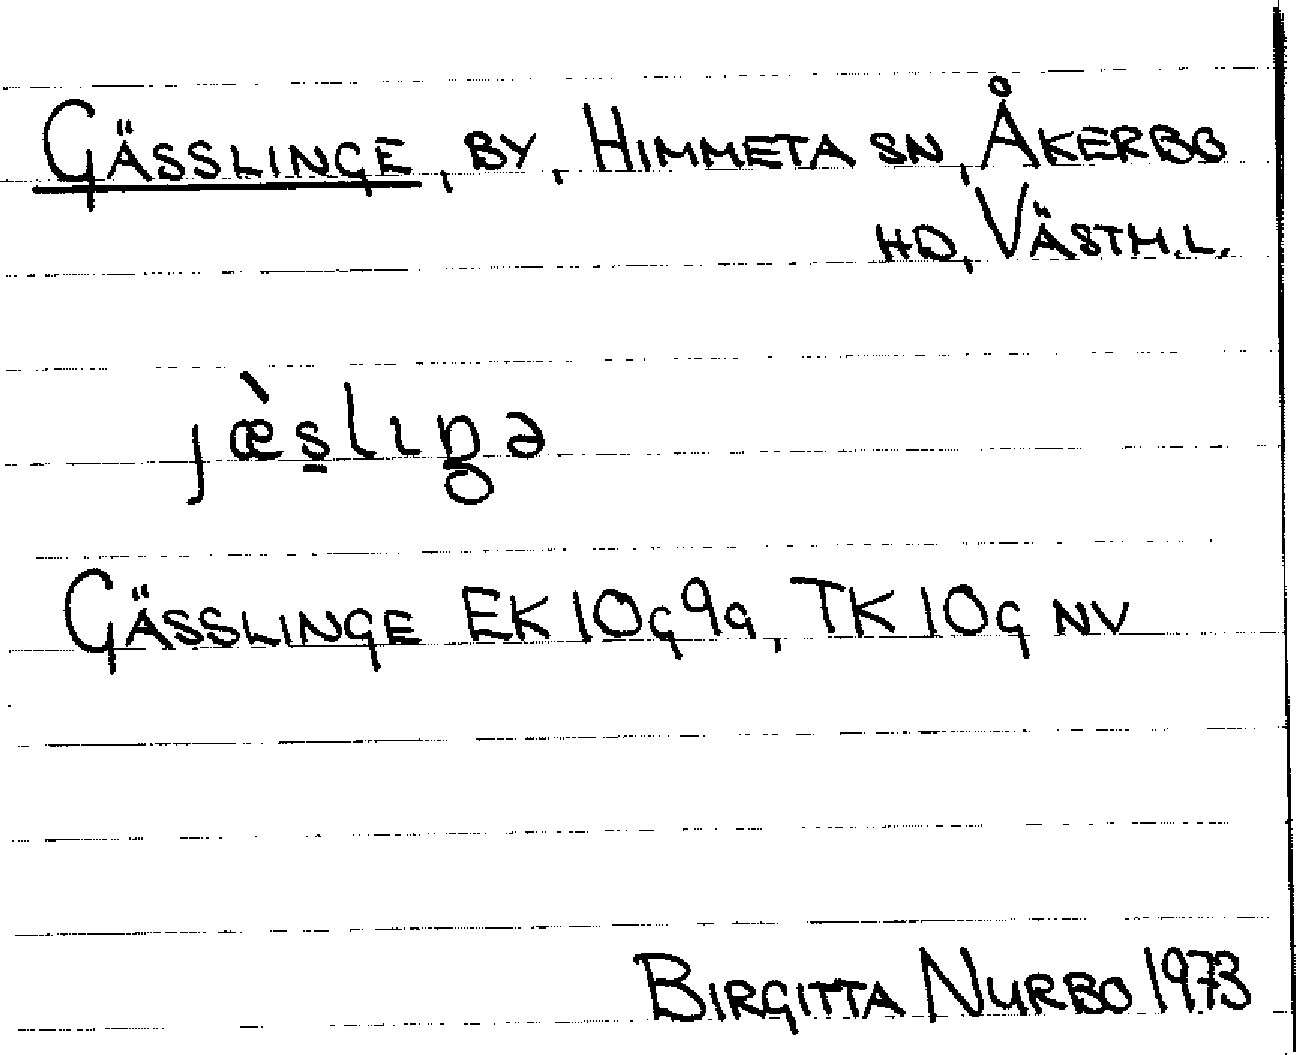 GÄSSLINGE, BY, HIMMETA SN, ÅKERBO
HD, VÄSTM.L.
jæ̀s̱lıŋə
GÄSSLINGE EK 10G9a, TK 10G NV
BIRGITTA NURBO 1973